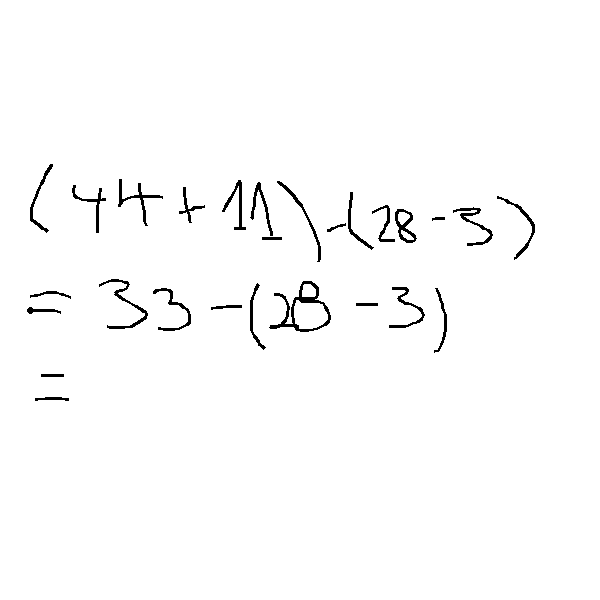 (44+11)-(28-3)
= 33-(28-3)
=